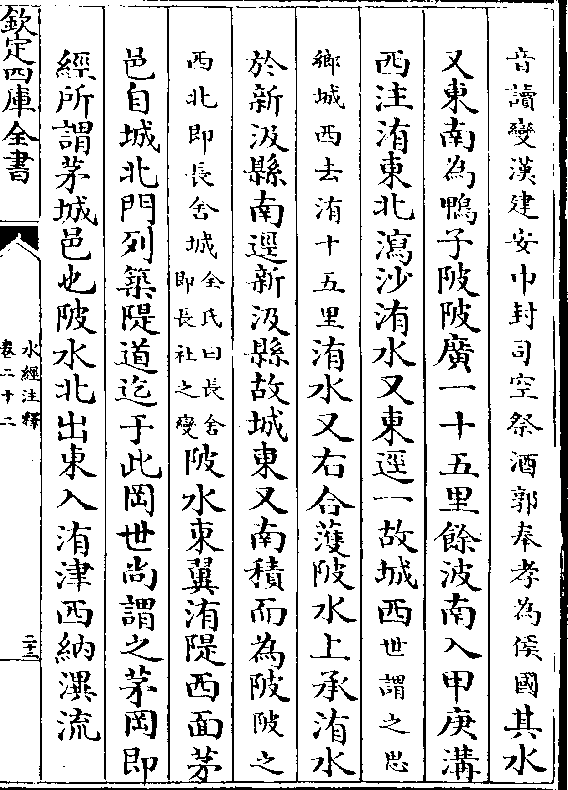 音讀變漢建安中封司空祭酒郭奉孝為侯國其水
又東南為鴨子陂陂廣一十五里餘波南入甲庚溝
西注洧東北瀉沙洧水又東逕一故城西世謂之思
鄉城西去洧十五里洧水又右合蓫陂水上承洧水
於新汲縣南逕新汲縣故城東又南積而為陂陂之
西北即長舍城全氏曰長舍即長社之變陂水東翼洧隄西面茅
邑自城北門列築隄道迄于此岡世尚謂之茅岡即
經所謂茅城邑也陂水北出東入洧津西納潩流
欽定四庫全書
水經注釋
卷二十二
二十三